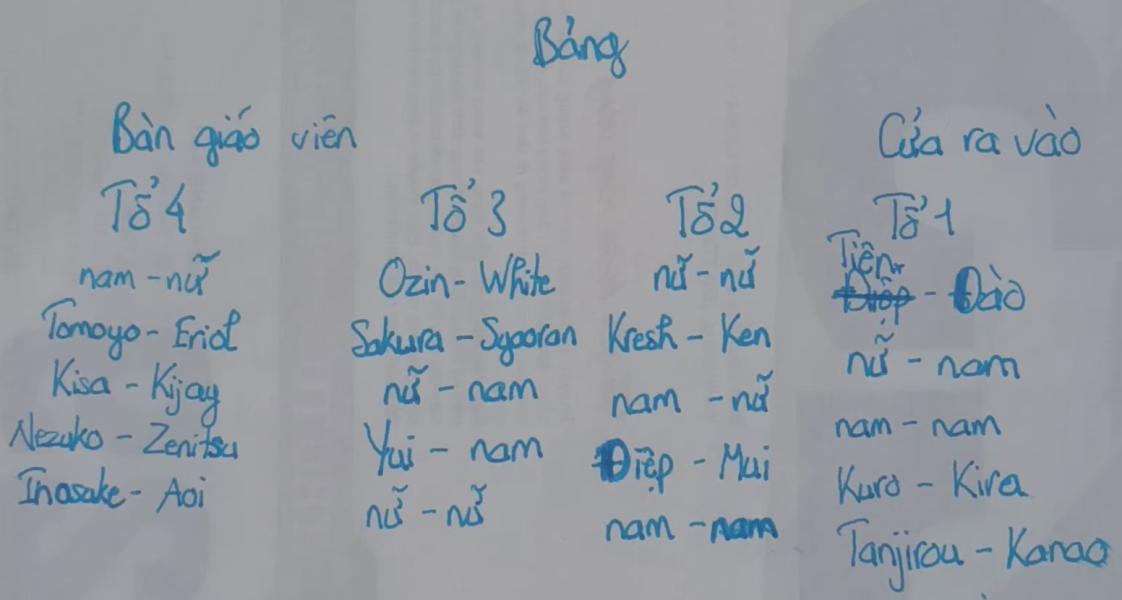 Bảng
Bàn giáo viên
Cửa ra vào
Tổ 4
nam - nữ
Tomoyo - Eriol
Kisa - Kijay
Nezuko - Zenitsu
Inosuke - Aoi
Tổ 3
Ozin - White
Sakura - Syaoran
nữ - nam
Yui - nam
nữ - nữ
Tổ 2
nữ - nữ
Kresh - Ken
nam - nữ
Điệp - Mui
nam - nam
Tổ 1
Tiên
Điệp - Đào
nữ - nam
nam - nam
Kuro - Kira
Tanjirou - Kanao